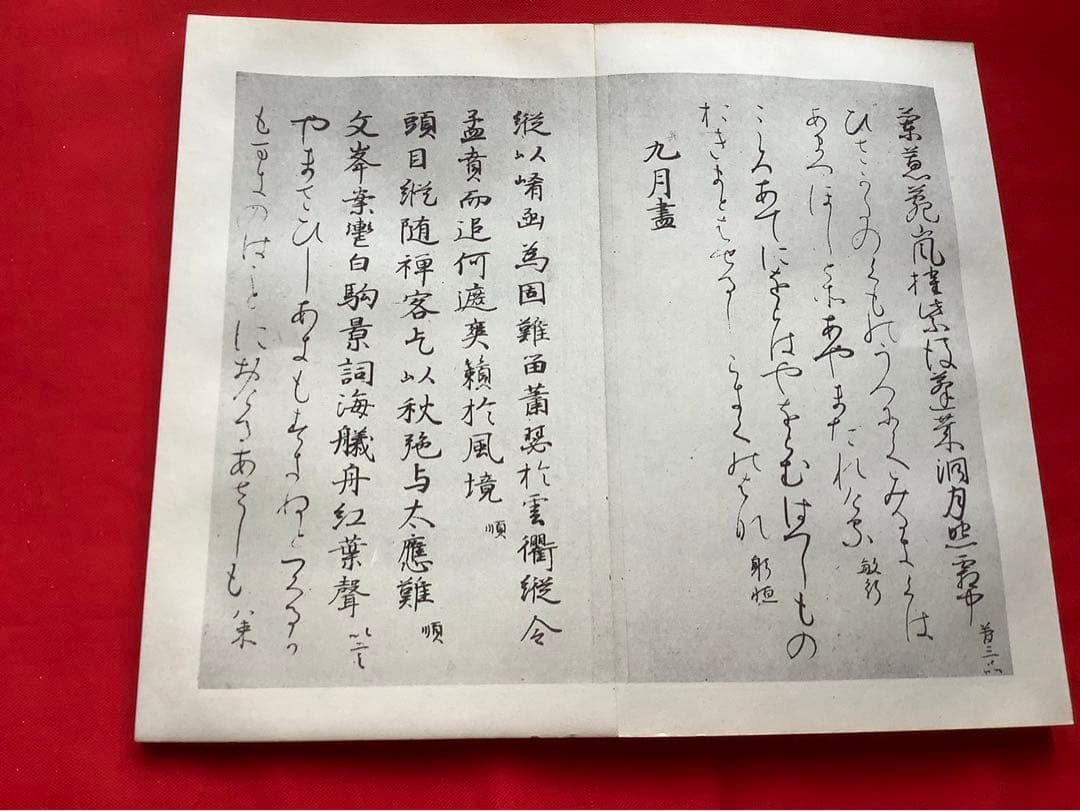 蘭蕙苑嵐摧紫後蓬莱洞月照霜中 菅三品
ひさかたのくものうへにてみるきくは
あまつほしとそあやまたれける 敏行
こゝろあてにをらはやをらむはつしもの
おきまとはせるしらきくのはな 躬恒
九月盡
縦以崤函為固難留蕭瑟於雲衢縦令
孟賁而追何遮爽籟於風境 順
頭目縦随禅客乞以秋施与太應難 順
文峯案轡白駒景詞海艤舟紅葉聲 以言
やまさひしあきもすきぬとつくるか
もまきのはことにおけるあさしも 八束